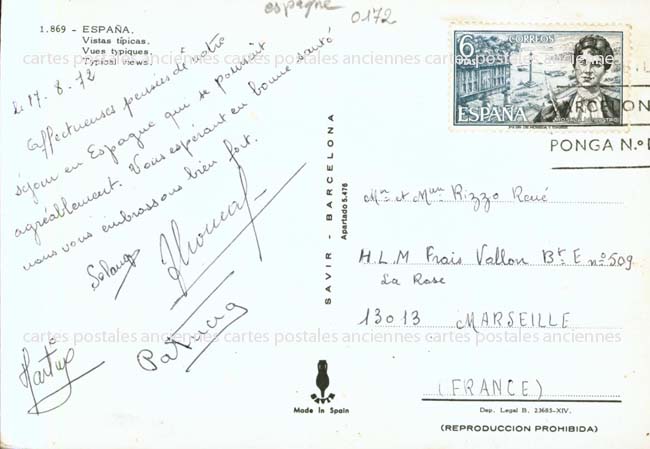 espagne
0172
1.869 - ESPAÑA.
Vistas típicas.
Vues typiques.
Typical views.
le 17.8.72
Affectueuses pensées de notre
séjour en Espagne qui se poursuit
agréablement. Vous espérant en bonne santé
nous vous embrassons bien fort.
Solange
Thomas
Patricia
Martine
SAVIR - BARCELONA
Apartado 5.476
6
PTAS
CORREOS
ESPAÑA
BARCELON
PONGA N.º D
Mr et Mme Rizzo René
H.L.M Frais Vallon Bt E nº 509
La Rose
13013 MARSEILLE
(FRANCE)
Made in Spain
Dep. Legal B. 23685-XIV.
(REPRODUCCION PROHIBIDA)
cartes postales anciennes cartes postales anciennes cartes postales anciennes
cartes postales anciennes cartes postales anciennes cartes postales anciennes